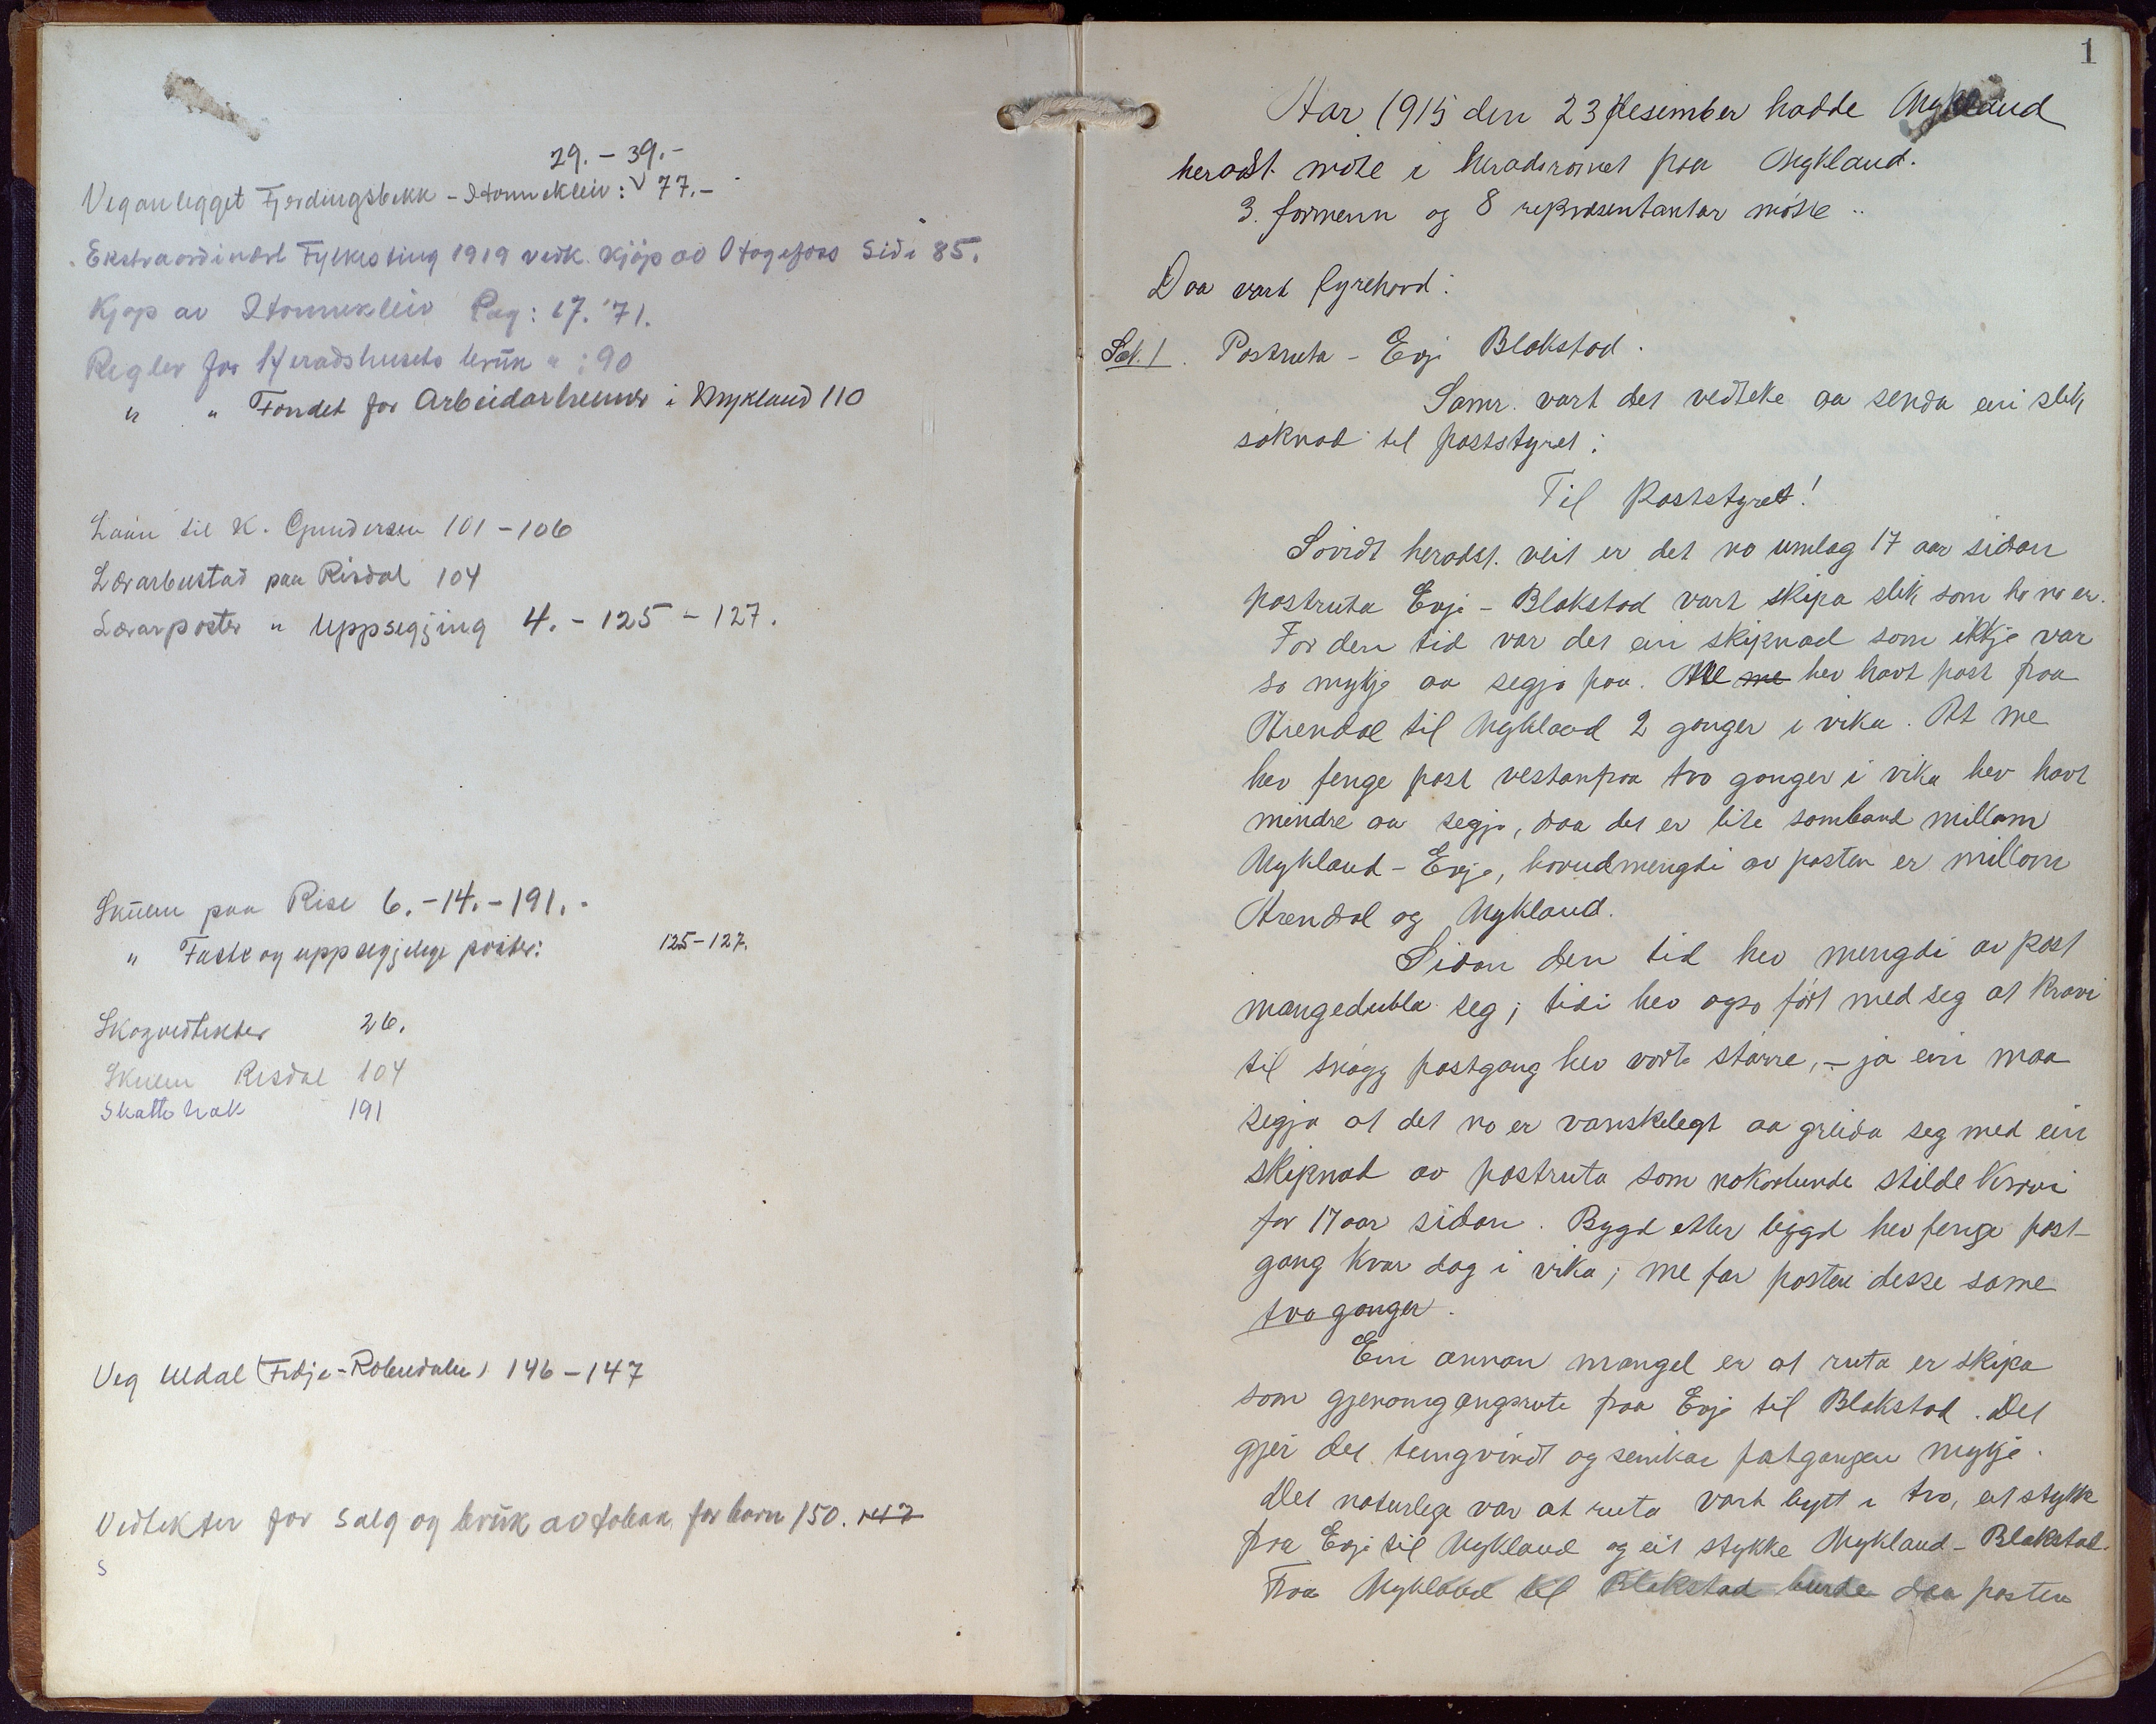 29. - 39.-
Veganlegget Fjerdingsbekk - Stonnekleiv: √ 77.-
Ekstraordinært Fylkesting 1919 vedk. kjöp av Otagefoss Side 85.
Kjöp av Stonnekleiv Pag: 17. 71.
Regler for Heradshusets bruk " : 90
" " Fondet for Arbeidarheimer i Mykland 110
Laan til K. Gundersen 101 - 106
Lærarbustad paa Risdal 104
Lærarposter " Uppsegjing 4. - 125 - 127.
Skulen paa Rise 6. - 14. - 191. -
" Faste og uppsegjelege poster: 125-127.
Skogvedtekter 26.
Skulen Risdal 104
Skattetrak 191
Veg Uldal (Fidje - Robendalen) 146 - 147
Vedtekter for salg og bruk av tobak for born 150. 147
S
1
Aar 1915 den 23 desember hadde Mykland
heradst. möte i heradsromet paa Mykland.
3. formenn og 8 representantar mötte..
Daa vart fyrehavd:
Sak. 1. Postruta - Evje Blakstad.
Samr. vart det vedteke aa senda ein slik
söknad til poststyret:
Til Poststyret!
Sovidt heradst. veit er det no umlag 17 aar sidan
postruta Evje - Blakstad vart skipa slik som ho no er.
For den tid var det ein skipnad som ikkje var
so mykje aa segja paa. Me me hev havt post fraa
Arendal til Mykland 2 gonger i vika. At me
hev fenge post vestanfraa tvo gonger i vika hev havt
mindre aa segja, daa det er lite samband millom
Mykland - Evje, hovudmengdi av posten er millom
Arendal og Mykland.
Sidan den tid hev mengdi av post
mangedubla seg; tidi hev ogso fört med seg at kravi
til snögg postgang hev vorte större, - ja ein maa
segja at det no er vanskelegt aa greida seg med ein
skipnad av postruta som nokorlunde stilde kravi
for 17 aar sidan. Bygd etter bygd hev fenge post-
gang kvar dag i vika; me far posten desse same
tvo gonger.
Ein annan mangel er at ruta er skipa
som gjenomgangsrute fraa Evje til Blakstad. Det
gjer det tungvindt og seinkar postgangen mykje.
Det naturlege var at ruta vart bytt i tvo, eit stykke
fraa Evje til Mykland og eit stykke Mykland - Blakstad.
Fraa Mykland til Blakstad burde daa posten